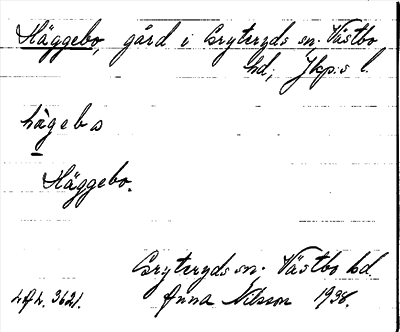 Häggebo, gård i Gryteryds sn. Västbo
hd, Jkp:s l.
hàgebo
Häggebo.
Gryteryds sn. Västbo hd.
Anna Nilsson 1938.
3621.